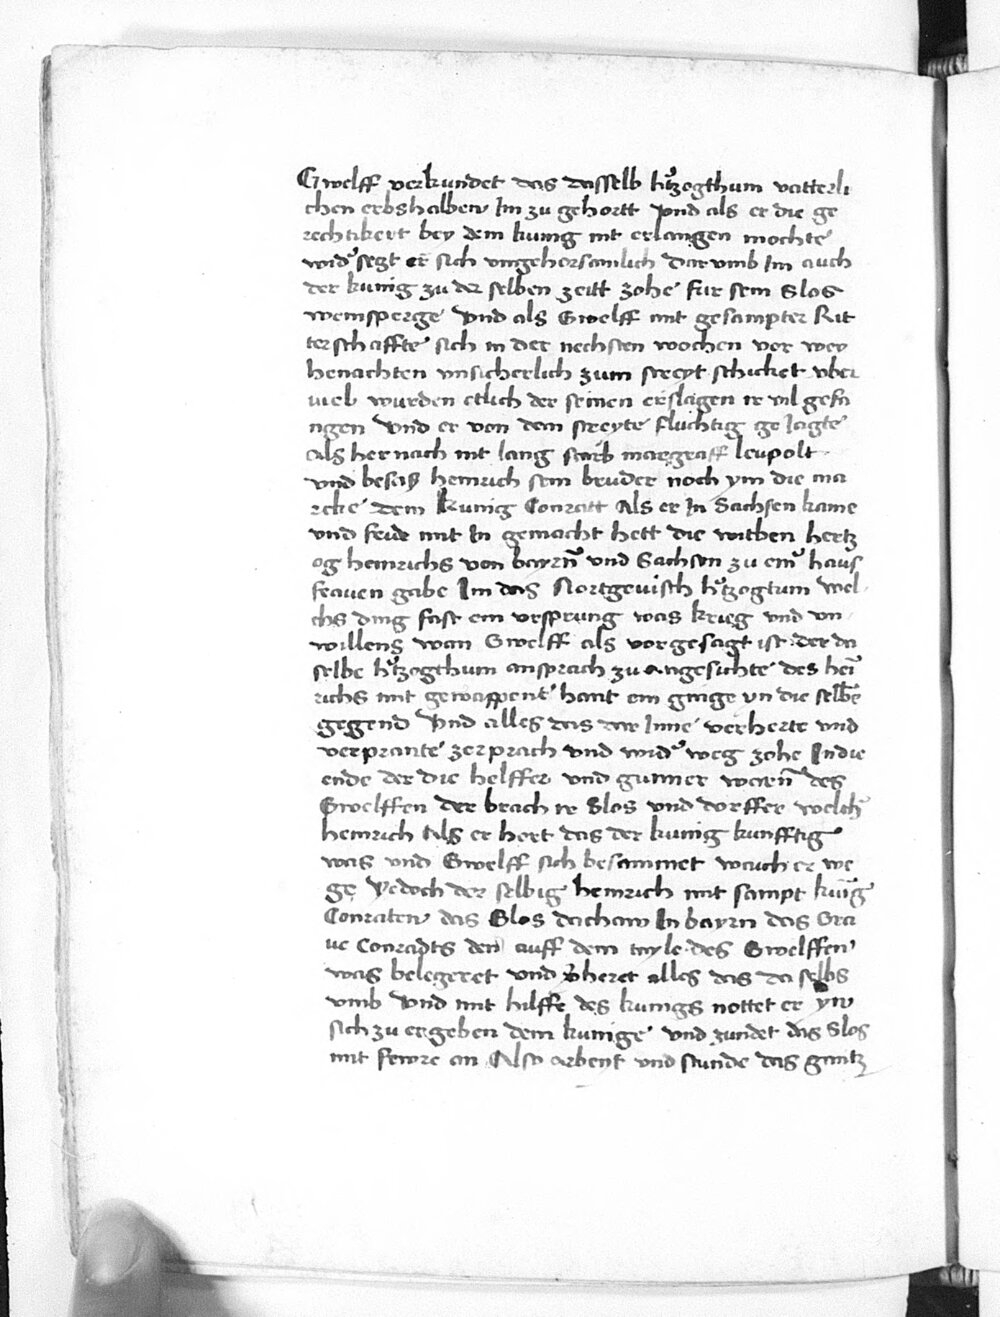 Gwelff verkundet das dasselb htzogthum vatterli
chen erbshalben Im zu gehortt Vnd als er die ge
rechtikert bey dem kunig nit erlangen mochte
wider segt er sich vngehorsamlich Dar vmb Im auch
der kunig zu der selben zeitt zohe fur sein Slos
weinsperge Vnd als Gwelff mit gesampter Rit
terschaffte sich in der nechsten wochen vor wey
henachten vnsicherlich zum streyt schicket vber
vieb wurden etlich der seinen erslagen ir vil gefn
ngen Vnd er von dem streyte fluchtig ge Jagte
Als her nach nit lang starb margraff leupolt
vnd besas heinrich sein bruder noch ym die ma
rcke dem kunig Conratt Als er In Sachsen kame
vnd fride mit In gemacht hett die witben hertz
og heinrichs von bayrn vnd Sachsen zu einer haus
frauen gabe Im das Nortgeuisch htzogtum wel
chs ding fast ein vrsprung was krieg vnd vn
willens wan Gwelff als vorgesagt ist der da
selbe htzogthum ansprach zu angesichte des hei
richs mit gewappent hant ein ginge yn die selbe
gegend Vnd alles das dar Inne verherte vnd
verprante zerprach vnd wider weg zohe In die
ende der die helffer vnd gunner waren des
Gwelffen Der brach ir Slos vnd dorffer welcher
heinrich Als er hort das der kunig kunfftig
was vnd Gwelff sich besammet wauch er we
ge Yedoch der selbig heinrich mit sampt kunig
Conraten das Slos dachaw In bayrn das Gra
ue Conradts den auff dem tayle des Gwelffen
was belegeret vnd vheret alles das da selbs
vmb Vnd mit hilffe des kunigs nottet er yn
sich zu ergeben dem kunige vnd zundet das Slos
mit fewre an Also arbeyt vnd stunde das gantz